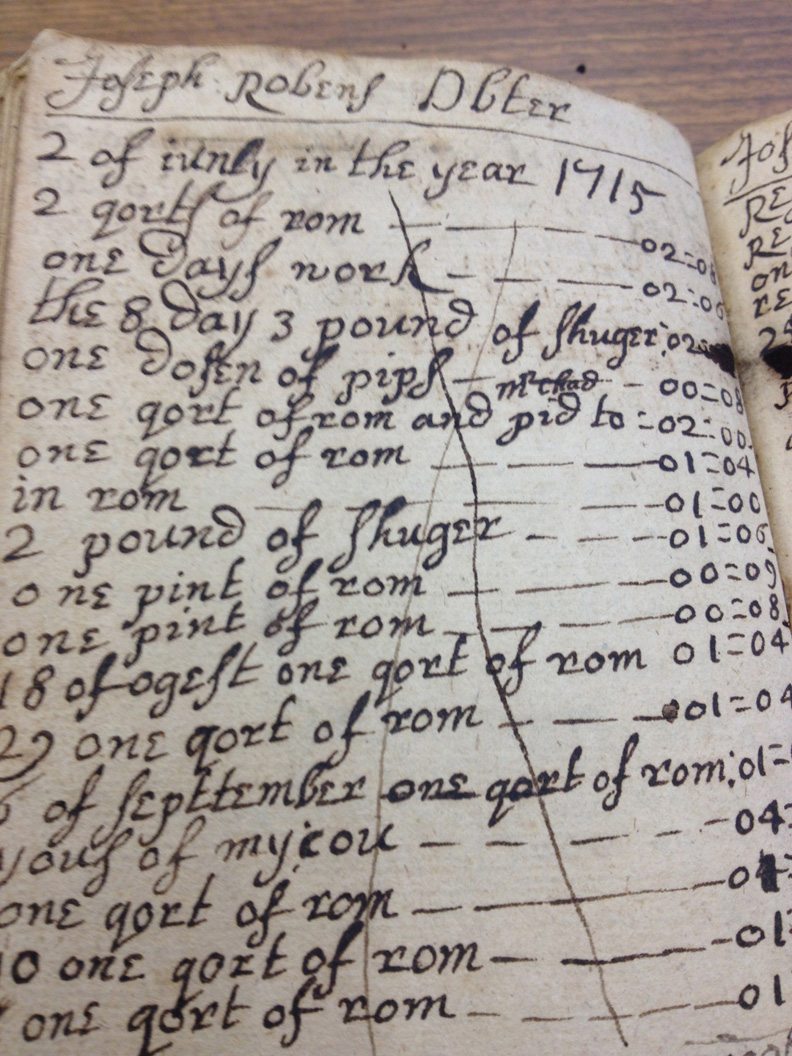 Joseph Robens Dbter
2 of iunly in the year 1715
2 qorts of rom — — — — — 02=0
one days work — — — — 02=06
the 8 day 3 pound of shuger: 02
one dosen of pips — — 00=08
one qort of rom and pid to = 02=00
one qort of rom — — — — 01=04
in rom — — — — — 01=00
2 pound of shuger — — — 01=06
one pint of rom — — — — 00=09
one pint of rom — — — — 00=08
18 of ogest one qort of rom 01=04
29 one qort of rom — — — 01=04
of septtember one qort of rom: 01=
yous of my cou — — — — 04=
one qort of rom — — — —
10 one qort of rom — — — 01
one qort of rom — — — — 01